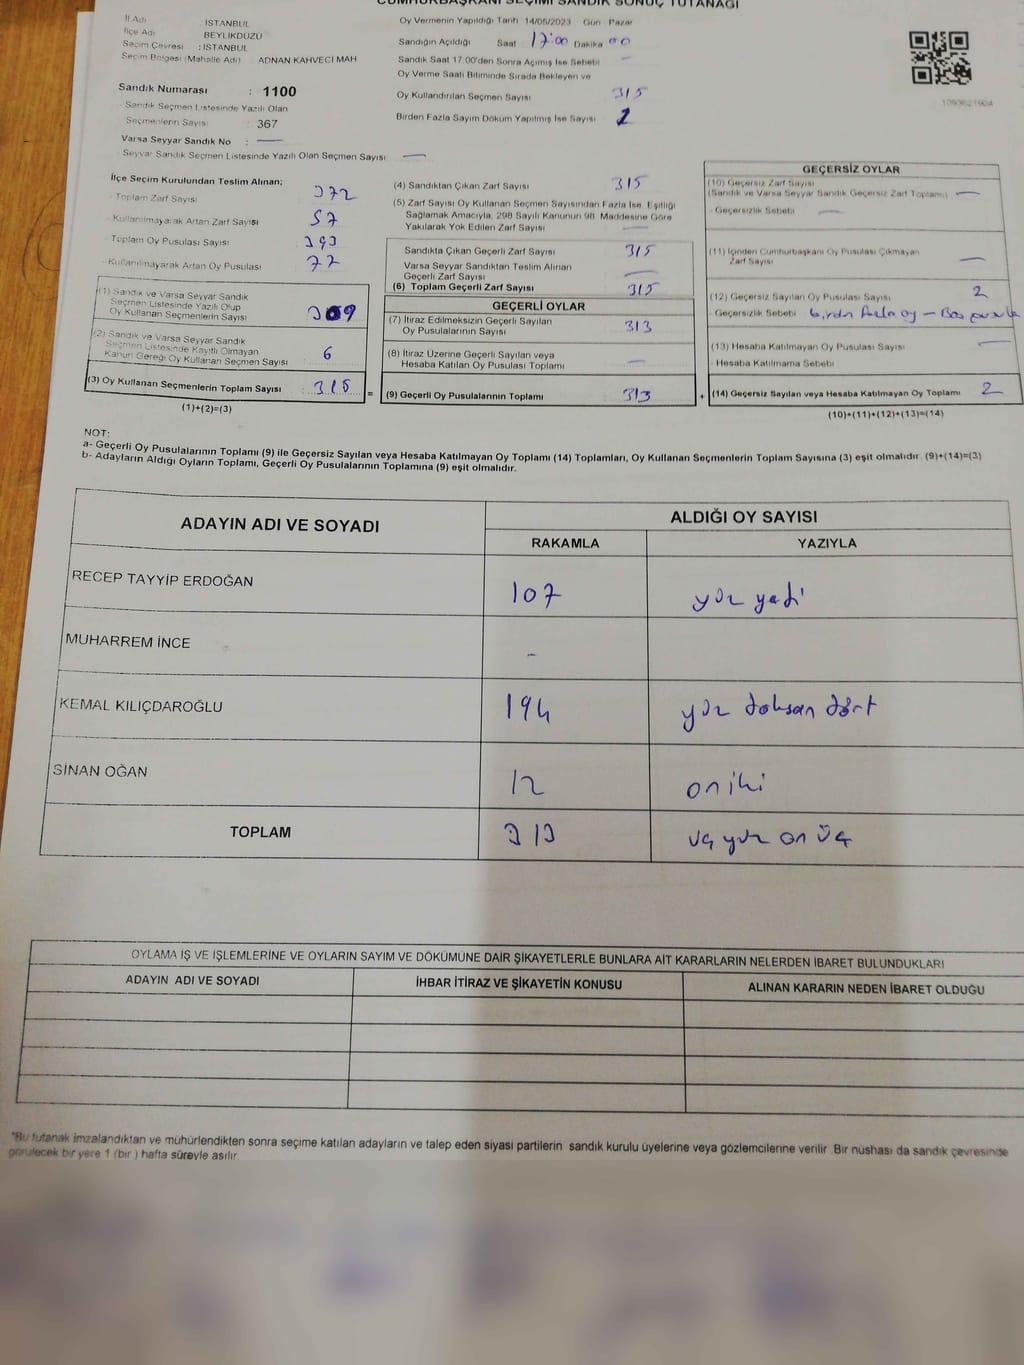 CUMHURBAŞKANI SEÇİMİ SANDIK SONUÇ TUTANAĞI
İl Adı İSTANBUL
İlçe Adı BEYLİKDÜZÜ
Seçim Çevresi : İSTANBUL
Seçim Bölgesi (Mahalle Adı) ADNAN KAHVECİ MAH
Sandık Numarası : 1100
Sandık Seçmen Listesinde Yazılı Olan
Seçmenlerin Sayısı : 367
Varsa Seyyar Sandık No : —
Seyyar Sandık Seçmen Listesinde Yazılı Olan Seçmen Sayısı —
Oy Vermenin Yapıldığı Tarih 14/05/2023 Gün Pazar
Sandığın Açıldığı Saat 17:00 Dakika 00
Sandık Saat 17.00'den Sonra Açımış İse Sebebi —
Oy Verme Saati Bitiminde Sırada Bekleyen ve
Oy Kullandırılan Seçmen Sayısı 315
Birden Fazla Sayım Döküm Yapılmış İse Sayısı
İlçe Seçim Kurulundan Teslim Alınan;
Toplam Zarf Sayısı 372
Kullanılmayarak Artan Zarf Sayısı 57
Toplam Oy Pusulası Sayısı 393
Kullanılmayarak Artan Oy Pusulası 77
(1) Sandık ve Varsa Seyyar Sandık
Seçmen Listesinde Yazılı Olup
Oy Kullanan Seçmenlerin Sayısı 309
(2) Sandık ve Varsa Seyyar Sandık
Seçmen Listesinde Kayıtlı Olmayan
Kanun Gereği Oy Kullanan Seçmen Sayısı 6
(3) Oy Kullanan Seçmenlerin Toplam Sayısı 315 =
(1)+(2)=(3)
(4) Sandıktan Çıkan Zarf Sayısı 315
(5) Zarf Sayısı Oy Kullanan Seçmen Sayısından Fazla İse, Eşitliği
Sağlamak Amacıyla, 298 Sayılı Kanunun 98. Maddesine Göre
Yakılarak Yok Edilen Zarf Sayısı —
Sandıkta Çıkan Geçerli Zarf Sayısı 315
Varsa Seyyar Sandıktan Teslim Alınan
Geçerli Zarf Sayısı —
(6) Toplam Geçerli Zarf Sayısı 315
GEÇERLİ OYLAR
(7) İtiraz Edilmeksizin Geçerli Sayılan
Oy Pusulalarının Sayısı 313
(8) İtiraz Üzerine Geçerli Sayılan veya
Hesaba Katılan Oy Pusulası Toplamı —
(9) Geçerli Oy Pusulalarının Toplamı 313 +
GEÇERSİZ OYLAR
(10) Geçersiz Zarf Sayısı
(Sandık ve Varsa Seyyar Sandık Geçersiz Zarf Toplamı) —
Geçersizlik Sebebi —
(11) İçinden Cumhurbaşkanı Oy Pusulası Çıkmayan
Zarf Sayısı —
(12) Geçersiz Sayılan Oy Pusulası Sayısı 2
Geçersizlik Sebebi birden fazla oy - Boş pusula
(13) Hesaba Katılmayan Oy Pusulası Sayısı —
Hesaba Katılmama Sebebi
(14) Geçersiz Sayılan veya Hesaba Katılmayan Oy Toplamı 2
(10)+(11)+(12)+(13)=(14)
NOT:
a- Geçerli Oy Pusulalarının Toplamı (9) ile Geçersiz Sayılan veya Hesaba Katılmayan Oy Toplamı (14) Toplamları, Oy Kullanan Seçmenlerin Toplam Sayısına (3) eşit olmalıdır. (9)+(14)=(3)
b- Adayların Aldığı Oyların Toplamı, Geçerli Oy Pusulalarının Toplamına (9) eşit olmalıdır.
ADAYIN ADI VE SOYADI ALDIĞI OY SAYISI
RAKAMLA YAZIYLA
RECEP TAYYİP ERDOĞAN 107 yüz yedi
MUHARREM İNCE -
KEMAL KILIÇDAROĞLU 194 yüz doksan dört
SİNAN OĞAN 12 on iki
TOPLAM 313 üç yüz on üç
OYLAMA İŞ VE İŞLEMLERİNE VE OYLARIN SAYIM VE DÖKÜMÜNE DAİR ŞİKAYETLERLE BUNLARA AİT KARARLARIN NELERDEN İBARET BULUNDUKLARI
ADAYIN ADI VE SOYADI İHBAR İTİRAZ VE ŞİKAYETİN KONUSU ALINAN KARARIN NEDEN İBARET OLDUĞU
*Bu tutanak imzalandıktan ve mühürlendikten sonra seçime katılan adayların ve talep eden siyasi partilerin sandık kurulu üyelerine veya gözlemcilerine verilir. Bir nushası da sandık çevresinde
görülecek bir yere 1 (bir ) hafta süreyle asılır.